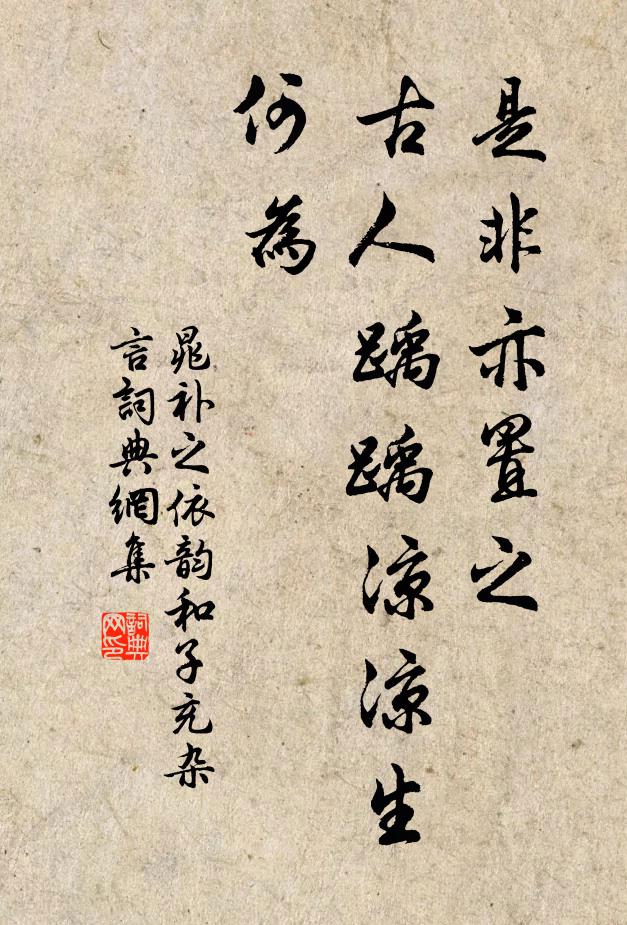 是非亦置之
古人踽踽涼涼生
何為
晁补之依韵和子充杂
言詞典網集
詞典
网印